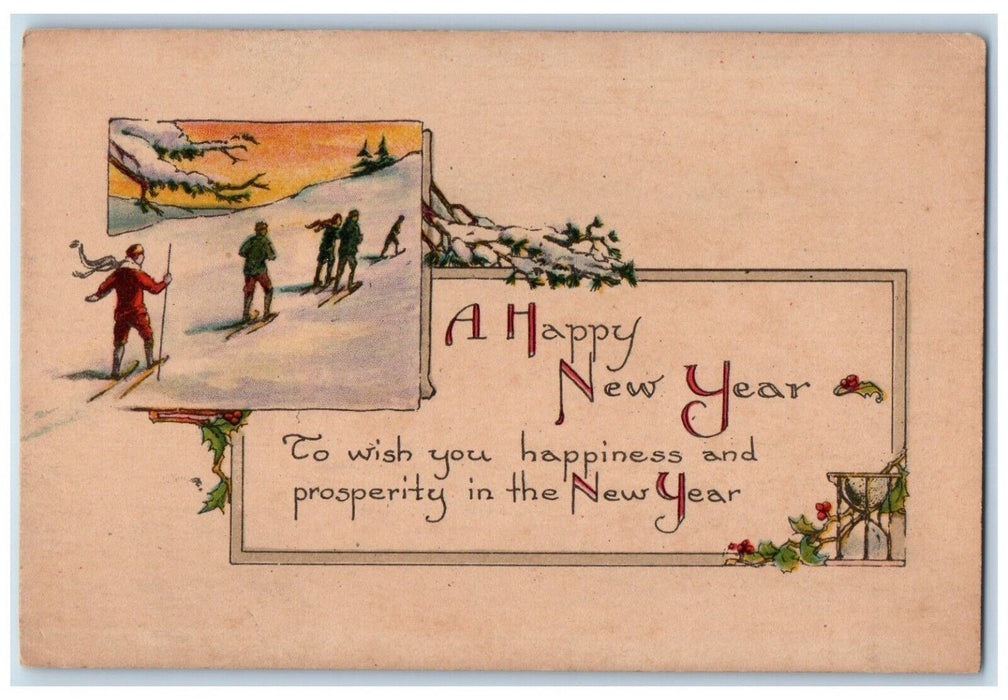 A Happy
New Year
To wish you happiness and
prosperity in the New Year